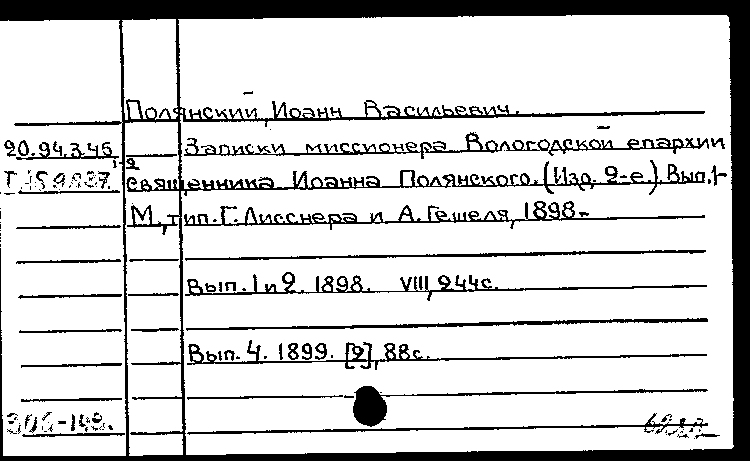 Полянский, Иоанн Васильевич.
20.94.3.45 Записки миссионера Вологодской епархии
1-2 священника Иоанна Полянского. (Изд. 2-е). Вып. 1-
М., тип. Г. Лисснера и А. Гешеля, 1898-
Вып. 1 и 2. 1898. VIII, 244с.
Вып. 4. 1899. [2], 88с.
306-149.